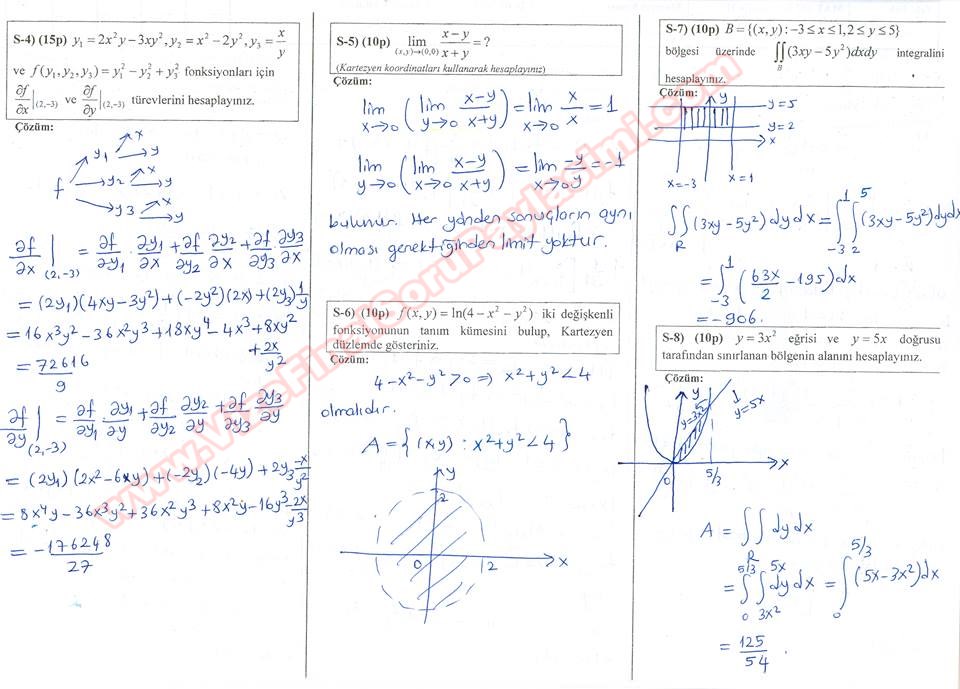 S-4) (15p) y₁ = 2x²y − 3xy², y₂ = x² − 2y², y₃ = x/y
ve f(y₁, y₂, y₃) = y₁² − y₂² + y₃² fonksiyonları için
∂f/∂x|(2,−3) ve ∂f/∂y|(2,−3) türevlerini hesaplayınız.
Çözüm:
f
y₁ x y
y₂ x y
y₃ x y
∂f/∂x|(2,−3) = ∂f/∂y₁ · ∂y₁/∂x + ∂f/∂y₂ · ∂y₂/∂x + ∂f/∂y₃ · ∂y₃/∂x
= (2y₁)(4xy − 3y²) + (−2y₂)(2x) + (2y₃) 1/y
= 16x³y² − 36x²y³ + 18xy⁴ − 4x³ + 8xy²
+ 2x/y²
= 72616/9
∂f/∂y|(2,−3) = ∂f/∂y₁ · ∂y₁/∂y + ∂f/∂y₂ · ∂y₂/∂y + ∂f/∂y₃ · ∂y₃/∂y
= (2y₁)(2x² − 6xy) + (−2y₂)(−4y) + 2y₃ −x/y²
= 8x⁴y − 36x³y² + 36x²y³ + 8x²y − 16y³ − 2x²/y³
= −176248/27
S-5) (10p) lim (x,y)→(0,0) x−y/x+y = ?
(Kartezyen koordinatları kullanarak hesaplayınız)
Çözüm:
lim x→0 (lim y→0 x−y/x+y) = lim x→0 x/x = 1
lim y→0 (lim x→0 x−y/x+y) = lim x→0 −y/y = −1
bulunur. Her yönden sonuçların aynı
olması gerektiğinden limit yoktur.
S-6) (10p) f(x, y) = ln(4 − x² − y²) iki değişkenli
fonksiyonunun tanım kümesini bulup, Kartezyen
düzlemde gösteriniz.
Çözüm:
4−x²−y² > 0 ⇒ x²+y² < 4
olmalıdır.
A = { (x,y) : x²+y² < 4 }
y
2
0 2 x
S-7) (10p) B = {(x, y) : −3 ≤ x ≤ 1, 2 ≤ y ≤ 5}
bölgesi üzerinde ∬B (3xy − 5y²)dxdy integralini
hesaplayınız.
Çözüm:
y
y=5
y=2
x
x=−3 x=1
∬R (3xy−5y²) dy dx = ∫−3^1 ∫2^5 (3xy−5y²) dy dx
= ∫−3^1 (63x/2 − 195) dx
= −906.
S-8) (10p) y = 3x² eğrisi ve y = 5x doğrusu
tarafından sınırlanan bölgenin alanını hesaplayınız.
Çözüm:
y
y=3x²
y=5x
0 5/3 x
A = ∬R dy dx
= ∫0^5/3 ∫3x²^5x dy dx = ∫0^5/3 (5x−3x²) dx
= 125/54.
www.VizeFinalSoruPaylasimi.com